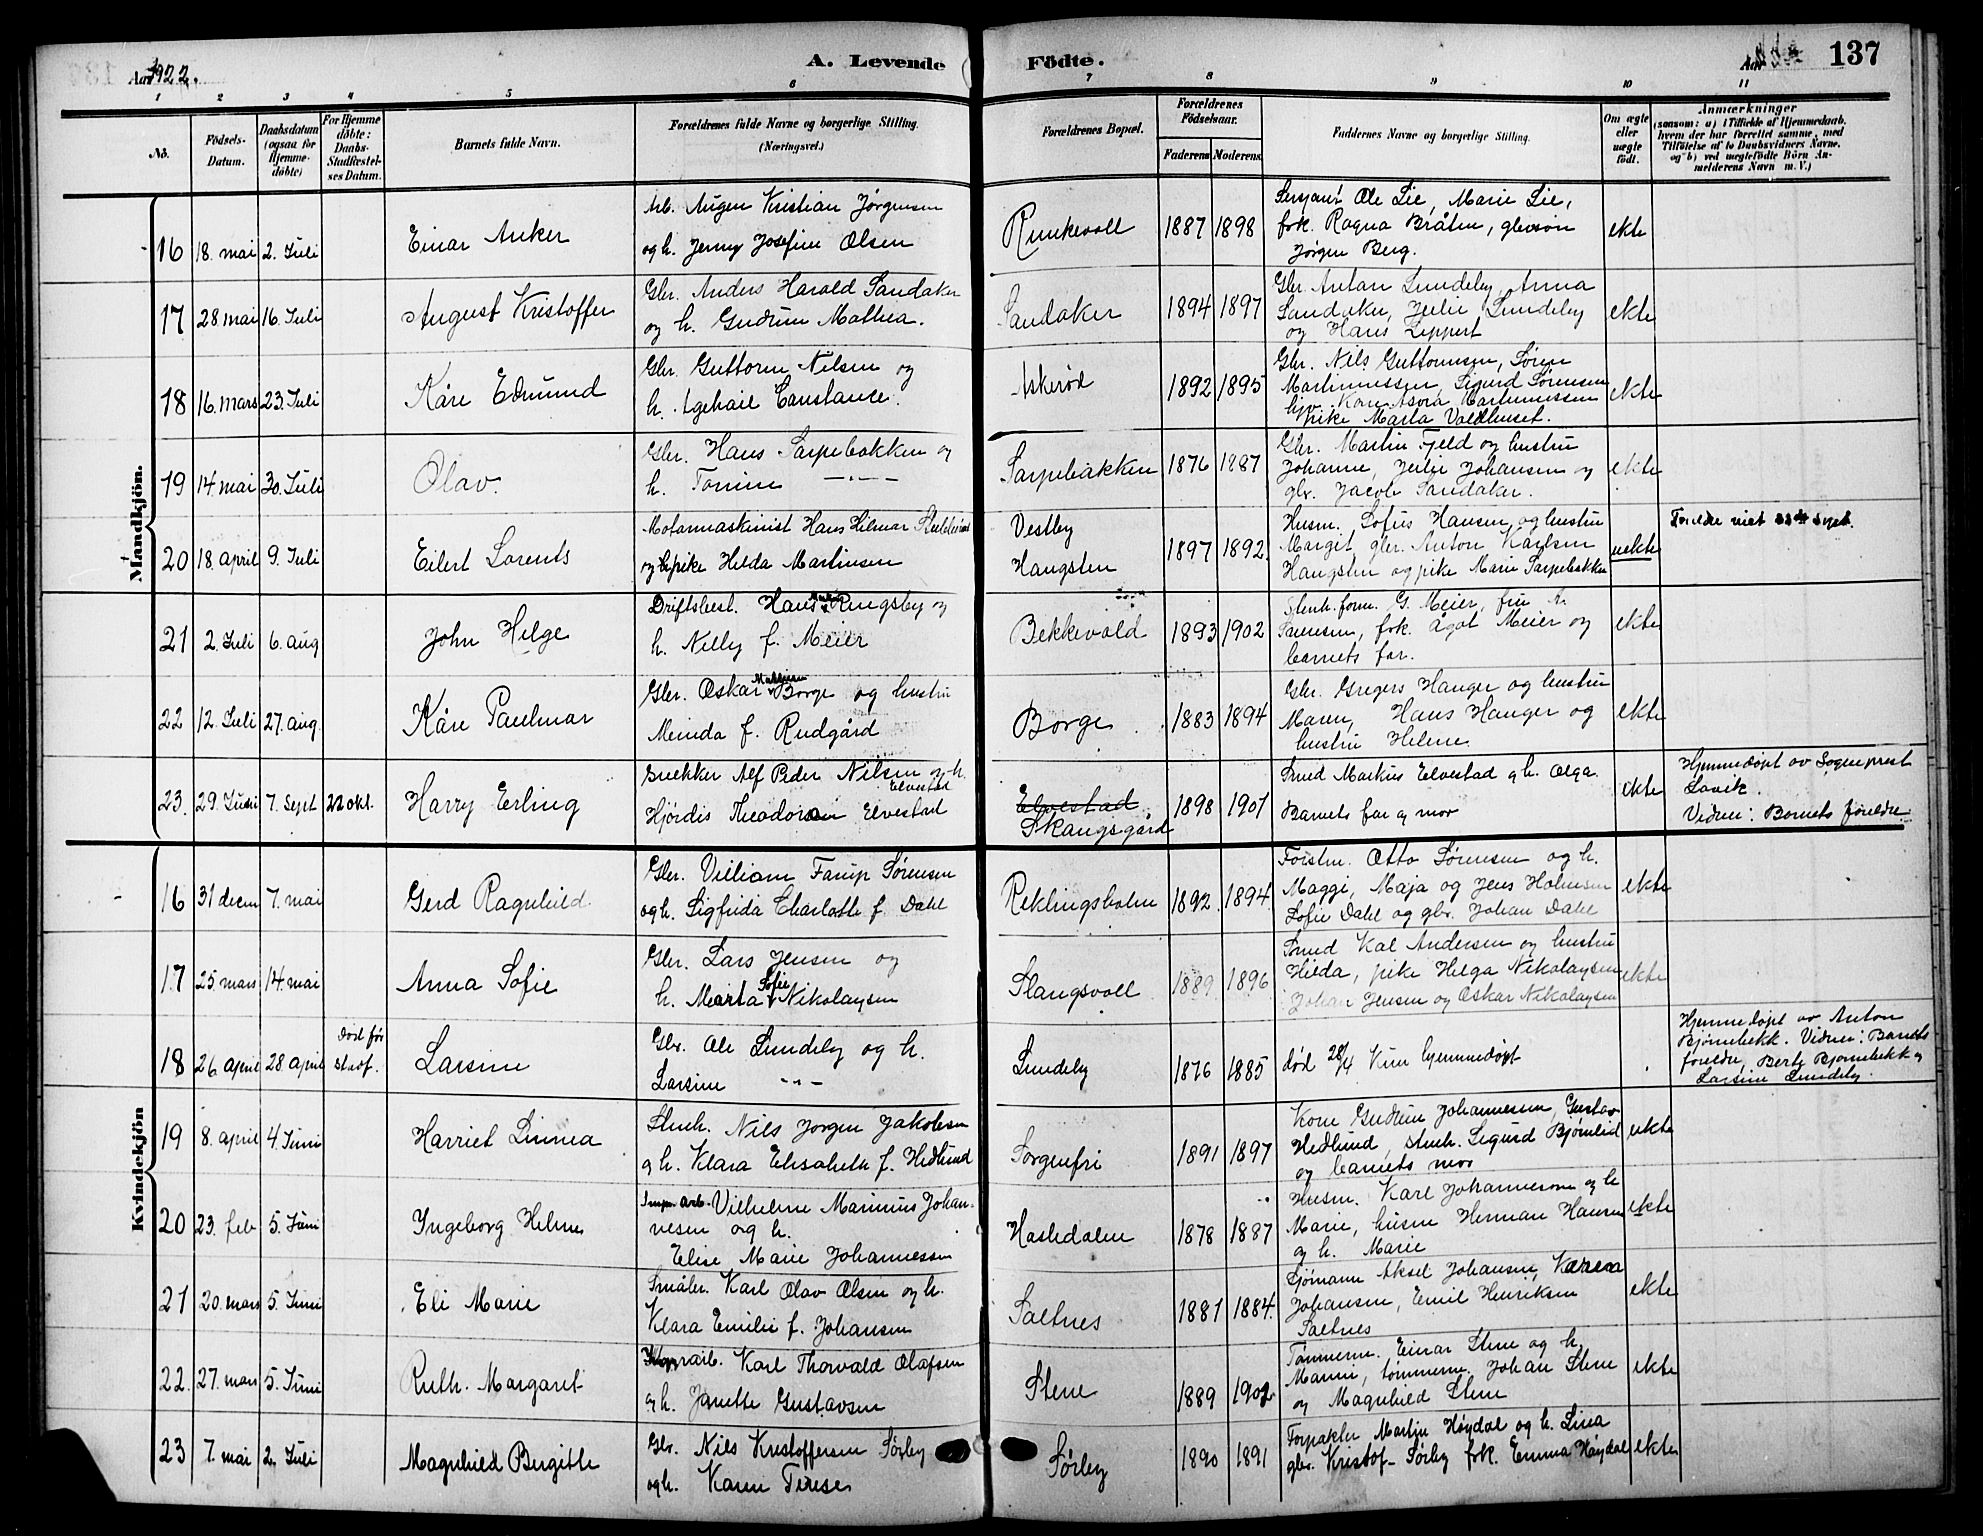 Aar 1922.
A. Levende
Födte.
Aar
137
1 2 3 4 5 6 7 8 9 10 11
No.
Födsels-Datum.
Daabsdatum (ogsaa for Hjemme-döbte)
For Hjemme döbte: Daabs-Stadfæstel-ses Datum.
Barnets fulde Navn.
Forældrenes fulde Navne og borgerlige Stilling.
(Næringsvei.)
Forældrenes Bopæl.
Forældrenes Födselsaar.
Faderens Moderens
Faddernes Navne og borgerlige Stilling.
Om ægte eller uægte födt.
Anmærkninger
(saasom: a) i Tilfælde af Hjemmedaab,
hvem der har forrettet samme, med
Tilföielse af to Daabsvidners Navne,
og b) ved uægtefödte Börn An-
melderens Navn m. V.)
Mandkjön.
16 18. mai 2. Juli Einar Anker
Arb. Augen Kristian Jørgensen
og h. Jenny Josefine Olsen
Runkevoll 1887 1898
Sersjant Ole Lie, Marie Lie,
frk. Ragna Bråten,
Jørgen Berg.
ekte
17 28. mai 16. Juli August Kristoffer
Gbr. Anders Harald Sandaker
og h. Gudrun Mathea.
Sandaker 1894 1897
Gbr. Anton Lundeby, Anna
Sandaker, Julie Lundeby
og Hans Lippert
ekte
18 16. mars 23. Juli Kåre Edmund
Gbr. Guttorm Nilsen og
h. Constance.
Askerød 1892 1895
Gbr. Nils Guttormsen, Søren
Martinussen, Sigurd Sørensen
Kone Martinussen
pike Marta Valdhuset.
ekte
19 14 mai 30. Juli Olav.
Gbr. Hans Sarpebakken og
h. Tomine —"—
Sarpebakken 1876 1887
Gbr. Martin Fjeld og hustru
Johanne, Julie Johansen og
gbr. Jacob Sandaker.
ekte
20 18. april 9. Juli Eilert Lorents
Motormaskinist Hans Hilmar
og pike Hilda Martinsen
Vestby
Haugsten 1897 1892.
Husm. Lofus Hansen og hustru
Margit, gbr. Anton Karlsen
Haugsten og pike Marie Sarpebakken
uekte
21 2. Juli 6. aug John Helge
Driftsbest. Hans Ringsby og
h. Nelly f. Meier
Bekkevold 1893 1902
G. Meier, fru A.
Sørensen, frk. Ågot Meier og
barnets far.
ekte
22 12. Juli 27. aug. Kåre Paulmar
Gbr. Oskar Mathisen Borge og hustru
Meinda f. Rudgård
Borge 1883 1894
Gbr. Gregers Hauger og hustru
Maren, Hans Hauger og
hustru Helene.
ekte
23. 29. Juni 7. Sept 22 okt. Harry Erling
Snekker Alf Peder Nilsen og h.
Elvestad
Hjørdis Elvestad
Elvestad
Skangsgård 1898 1901
Smed Markus Elvestad og h. Olga.
Barnets far og mor
ekte
Hjemmedøpt av Sogneprest
Lavik.
Vidner: Barnets foreldre
Kvindekjön
16 31 decem 7. mai Gerd Ragnhild
Gbr. Villiam Farup Sørensen
og h. Sigfrida Charlotte f. Dahl
Reklingsholm 1892. 1894
Forstm. Otto Sørensen og h.
Maggi, Maja og Jens Holmsen
Sofie Dahl og gbr. Johan Dahl
ekte
17 25. mars 14. mai Anna Sofie
Gbr. Lars Jensen og
Sofie
h. Marta Nikolaysen
Slangsvoll 1889 1896
Smed Kal Andersen og hustru
Hilda, pike Helga Nikolaysen
Johan Jensen og Oskar Nikolaysen
ekte
18 26 april 28. april død før stadf. Larsine
Gbr. Ole Lundeby og h.
Larsine —"—
Lundeby 1876 1885
død 28/4 Kun hjemmedøpt
Hjemmedøpt av Anton
Bjørnebekk. Vidner: Barnets
foreldre, Berte Bjørnebekk og
Larsine Lundeby.
19 8. april 4. Juni Harriet Linnea
Stenh. Nils Jørgen Jakobsen
og h. Klara Elisabeth f. Hedlund
Sorgenfri 1891 1897
Kone Gudrun Johannessen, Gustav
Hedlund, stenh. Sigurd Bjørnlid
og barnets mor
ekte
20 23. feb 5. Juni Ingeborg Helene
arb. Vilhelm Marinus Johan-
nesen og h.
Elise Marie Johannessen
Hasledalen 1878 1887
Husm. Karl Johannesen og h
Marie, husm Herman Hansen
og h. Marie
ekte
21 20. mars 5. Juni Eli Marie
Småbr. Karl Olav Olsen og h.
Klara Emilie f. Johansen
Saltnes 1881 1884.
Sjømann Aksel Johansen, Karen
Johansen, Emil Henriksen
Saltnes
ekte
22. 27. mars 5. Juni Ruth. Margaret
Karl Thorvald Olafsen
og h. Janette Gustavsen
Stene 1889 1902
Tømmerm. Einar Stene og h.
Marie, tømmerm. Johan Stene
og Magnhild Stene
ekte
23 7. mai 2. Juli Magnhild Birgitte
Gbr. Nils Kristoffersen Sørby
og h. Karen Terese
Sørby 1890 1891
Forpakter Martin Høydal og h. Lina
gbr. Kristof- Sørby frk. Emma Høydal
ekte